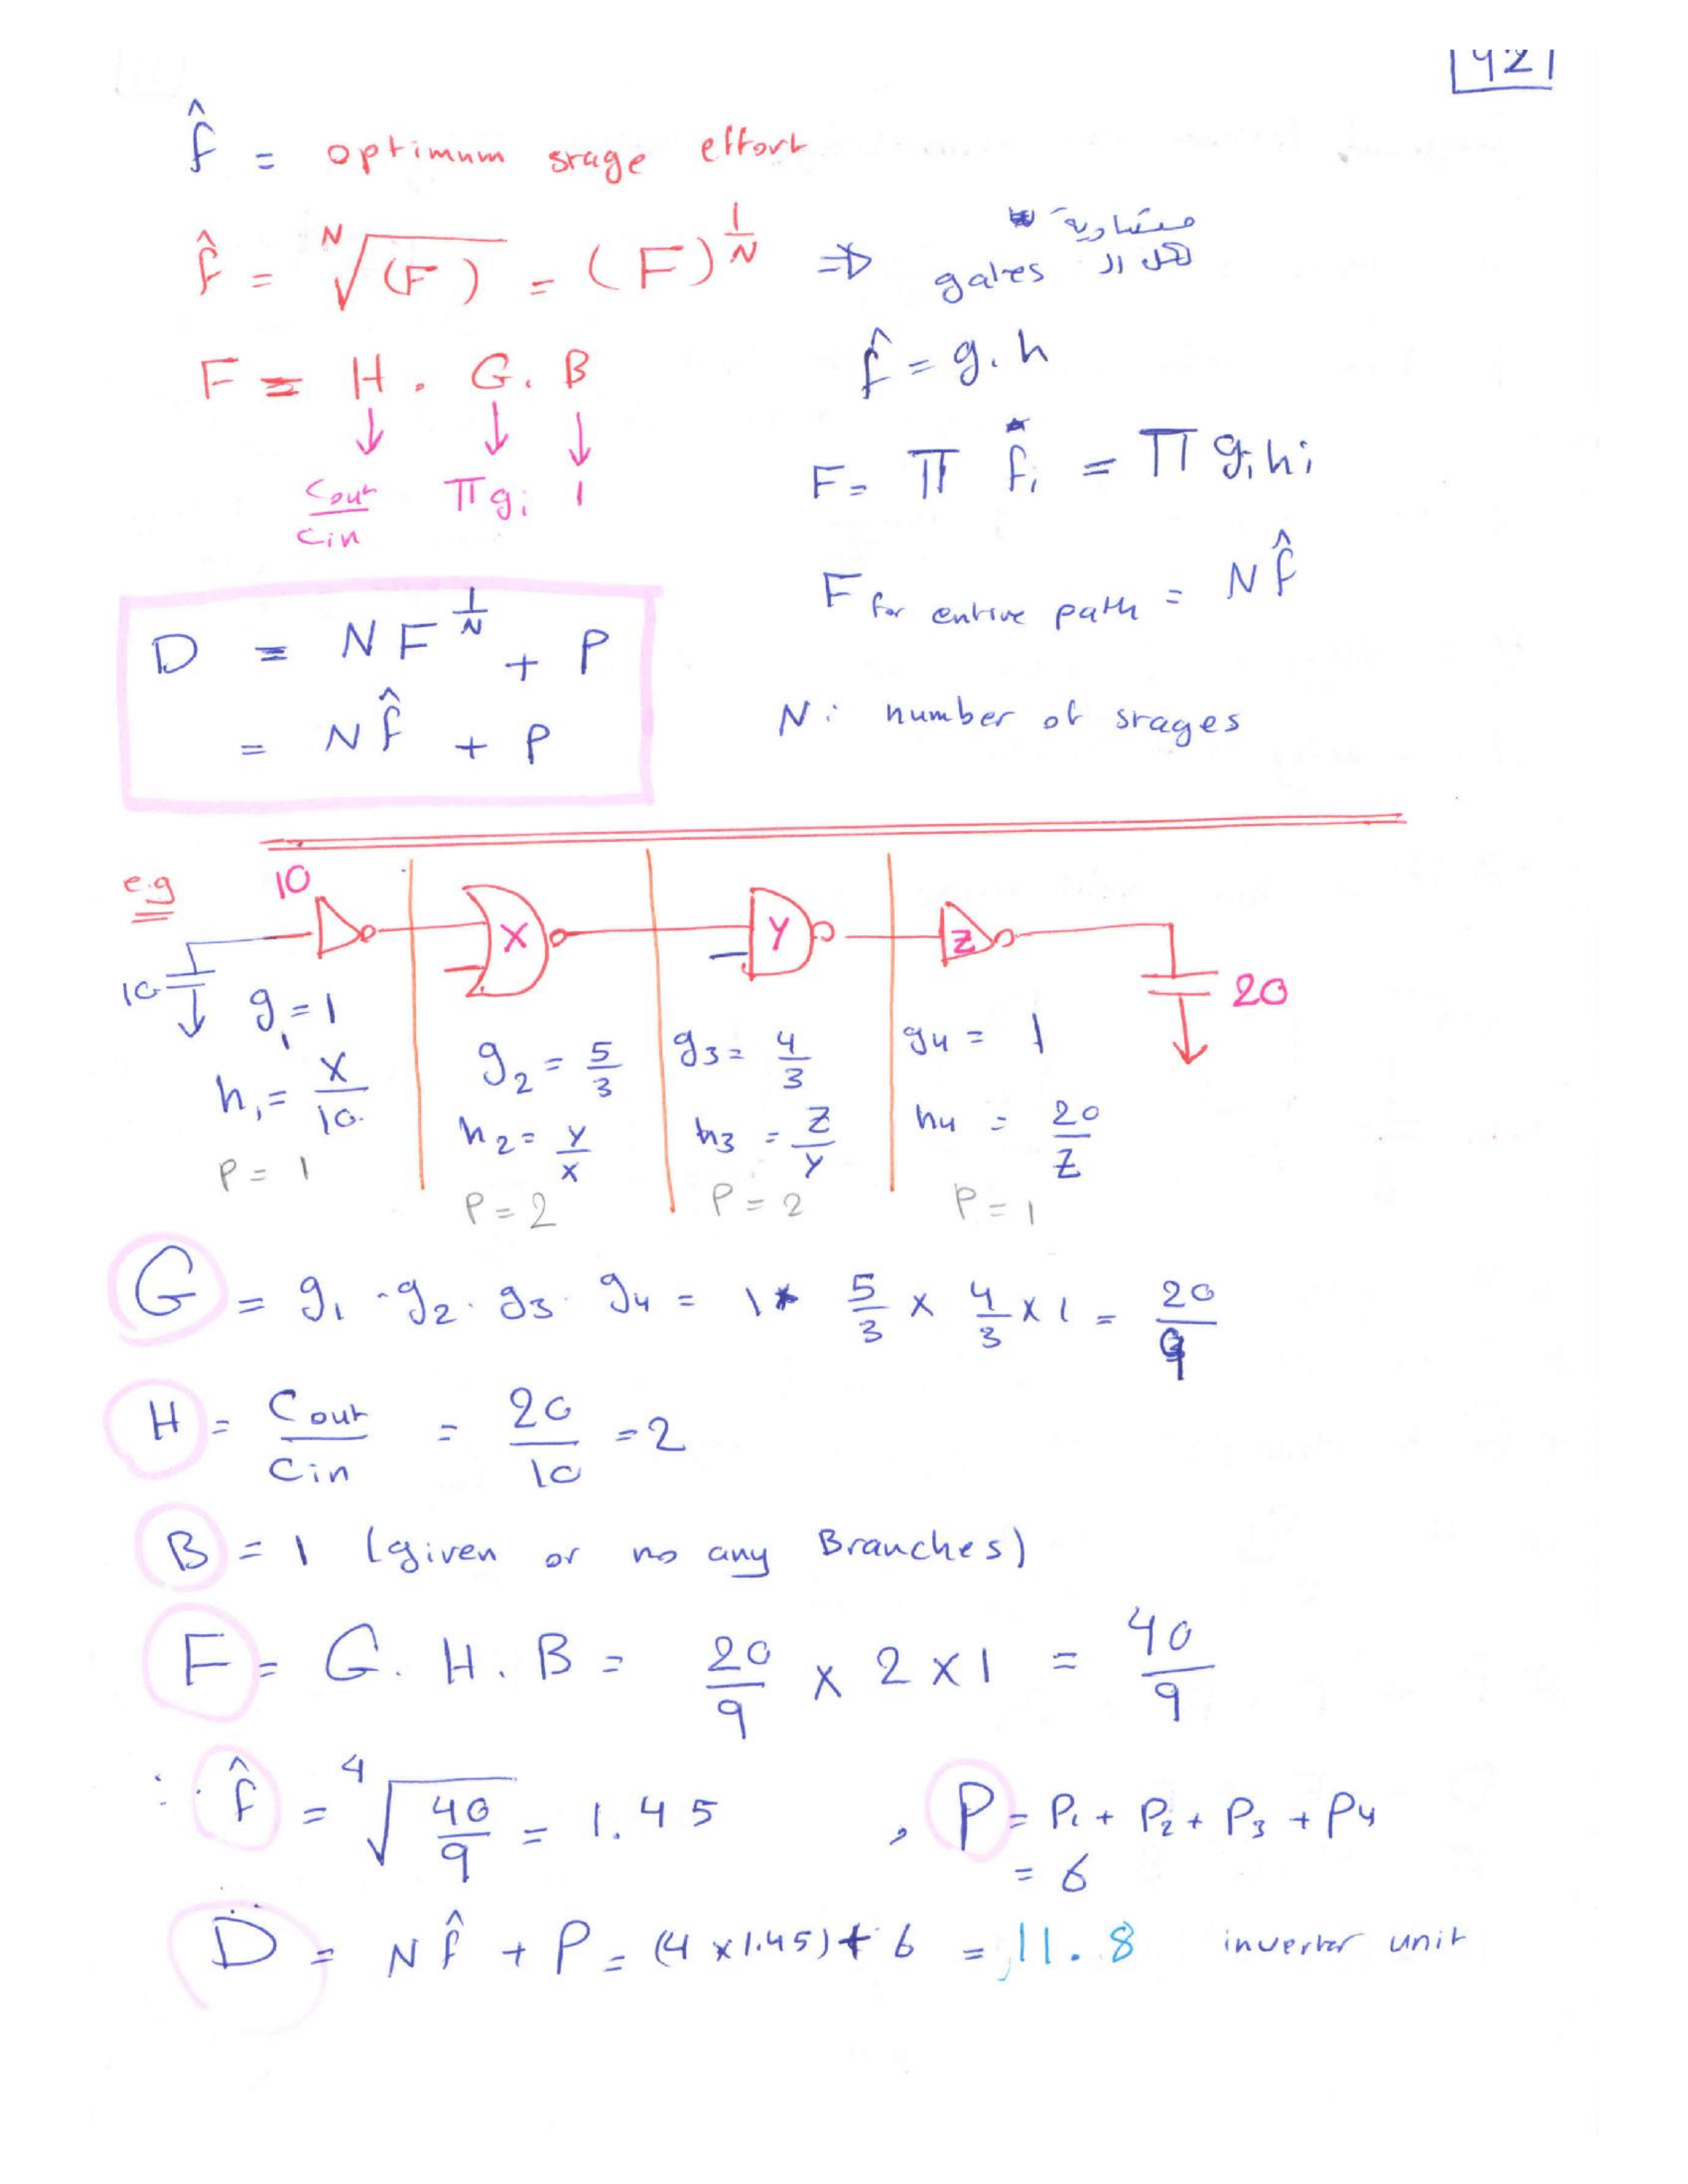 42
f̂ = optimum srage effort
f̂ = ᴺ√(F) = (F)^(1/N) ⇒ متساوية لكل ال gates
F = H . G . B
f̂ = g . h
↓ ↓ ↓
Cout/Cin πgi 1
F = π fi = π gi hi
F for entire path = N f̂
D = N F^(1/N) + P
= N f̂ + P
N: number of srages
e.g
10
X Y Z
10 20
g1 = 1
h1 = X/10
P = 1
g2 = 5/3
h2 = Y/X
P = 2
g3 = 4/3
h3 = Z/Y
P = 2
g4 = 1
h4 = 20/Z
P = 1
G = g1 . g2 . g3 . g4 = 1 * 5/3 × 4/3 × 1 = 20/9
H = Cout/Cin = 20/10 = 2
B = 1 (given or no any Branches)
F = G . H . B = 20/9 × 2 × 1 = 40/9
∴ f̂ = ⁴√(40/9) = 1.45 , P = P1 + P2 + P3 + P4
= 6
D = N f̂ + P = (4 × 1.45) + 6 = 11.8 inverter unit